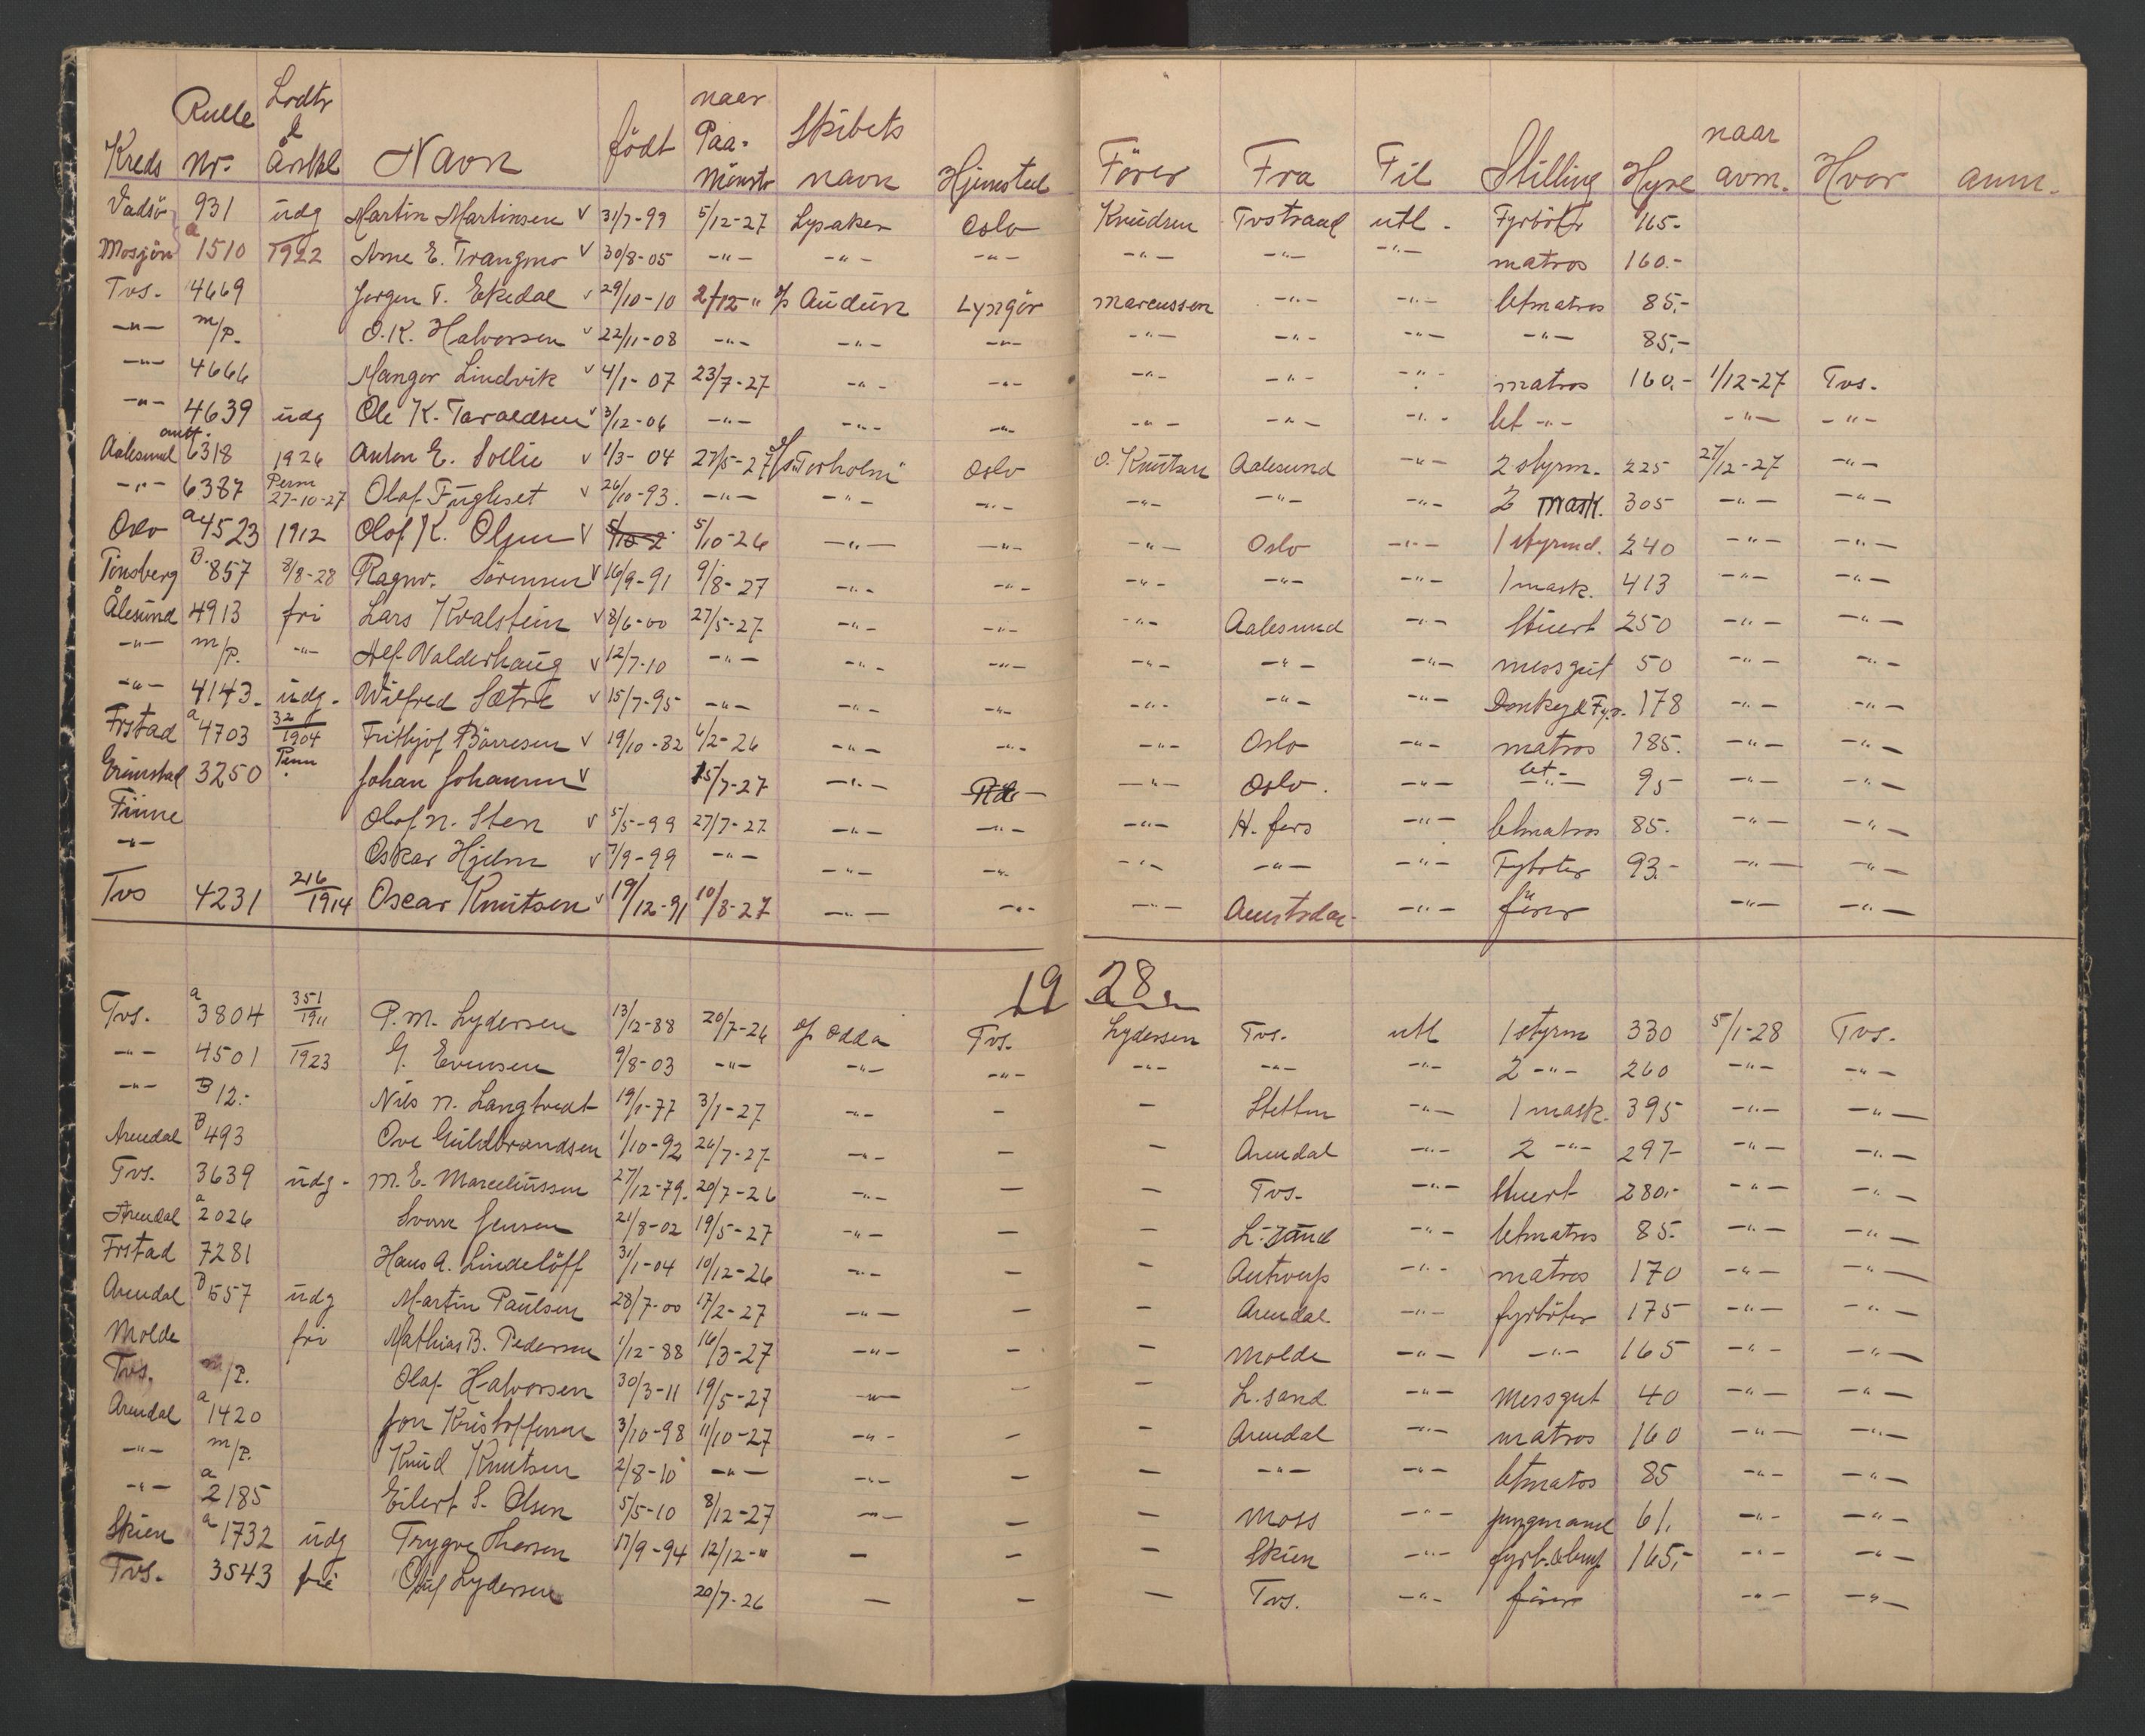 Kreds Rulle nr. Lodtr & Årskl Navn født naar Paa-mönstr Skibets navn Hjemsted Förer Fra Til Stilling Hyre naar avm. Hvor anm.
Vadsö 931 udg Martin Martinsen v 31/7-99 5/12-27 Lysaker Oslo Knudsen Tvstrand utl. Fyrböter 165.-
Mosjöen a 1510 1922 Arne E. Trangmo v 30/8-05 -"- -"- -"- -"- -"- -"- matros 160.-
Tvs. 4669 Jørgen T. Ekedal v 29/10-10 2/12-" s/s Audun Lyngör Marcussen -"- -"- letmatros 85.-
-"- m/p. O.K. Halvorsen v 22/11-08 -"- -"- -"- -"- -"- -"- -"- 85.-
-"- 4666 Mangor Lindvik v 4/1-07 23/7-27 -"- -"- -"- -"- -"- matros 160.- 1/12-27 Tvs.
-"- 4639 udg Ole K. Taraldsen v 3/12-06 -"- -"- -"- -"- -"- -"- let -"- -"- -"-
Aalesund 6318 1926 Anton E. Sollie v 1/3-04 27/5-27 s/s "Torholm" Oslo O. Knutsen Aalesund -"- 2 styrm. 225 27/12-27 -"-
-"- 6387 Perm 27-10-27 Olaf Fugleset v 26/10-93. -"- -"- -"- -"- -"- -"- 2 mask. 305 -"- -"-
Oslo a 4523 1912 Olof K. Olsen v 5/10-2 5/10-26 -"- -"- -"- Oslo -"- 1 styrmd. 240 -"- -"-
Tönsberg B. 857 8/8-28 Ragnv. Sörensen v 16/9-91 9/8-27 -"- -"- -"- -"- -"- 1 mask. 413 -"- -"-
Ålesund 4913 fri Lars Kvalstein v 8/6-00 27/5-27 -"- -"- -"- Aalesund -"- Stuert 250 -"- -"-
-"- m/p. -"- Alf Valderhaug v 12/7-10 -"- -"- -"- -"- -"- -"- messgut 50 -"- -"-
-"- 4143. udg. Wilfred Sætre v 15/7-95 -"- -"- -"- -"- -"- -"- Donkey & Fyr. 178 -"- -"-
Frstad a 4703 32/1904 Frithjof Börresen v 19/10-82 6/2-26 -"- -"- -"- Oslo -"- matros 185. -"- -"-
Grimstad 3250 Perm Johan Johansen v 15/7-27 -"- -"- Oslo. -"- let -"- 95 -"- -"-
Finne Olof N. Sten v 5/5-99 27/7-27 -"- -"- -"- H. fors -"- letmatros 85. -"- -"-
-"- Oskar Hjelm v 7/9-99 -"- -"- -"- -"- -"- -"- Fyböter 93.- -"- -"-
Tvs 4231 216/1914 Oscar Knutsen v 19/12-91 10/8-27 -"- -"- -"- Amstrdam -"- förer -"- -"-
1928
Tvs. a 3804 351/1911 P.M. Lydersen 13/12-88 20/7-26 s/s Odda Tvs. Lydersen Tvs. utl 1 styrm 330 5/1-28 Tvs.
-"- 4501 1923 G. Evensen 9/8-03 -"- -"- -"- -"- -"- -"- 2 -"- 260 -"- -"-
-"- B 12.- Nils N. Langtvedt 19/1-77 3/1-27 -"- - - Stettin -"- 1 mask. 395 -"- -"-
Arendal B 493 Ove Guldbrandsen 1/10-92 26/7-27 -"- - - Arendal -"- 2 -"- 297- -"- -"-
Tvs. 3639 udg. M.E. Marceliussen 27/12-79. 20/7-26 -"- - - Tvs. -"- Stuert 280.- -"- -"-
Arendal a 2026 Sverre Jensen 21/8-02 19/5-27 -"- - - L. sand -"- letmatros 85.- -"- -"-
Frstad 7281 Hans A. Lindelöff 31/1-04 10/12-26 -"- - - Antwerp -"- matros 170 -"- -"-
Arendal B 557 udg Martin Paulsen 28/7-00 17/2-27 -"- - - Arendal. -"- fyrböter 175 -"- -"-
Molde fri Mathias B. Pedersen 1/12-88 16/3-27 -"- - - Molde -"- -"- 165 -"- -"-
Tvs. m/p. Olaf Halvorsen 30/3-11 19/5-27 -"- - - L. sand -"- Messgut 40 -"- -"-
Arendal a 1420 Jon Kristoffersen 3/10-98 11/10-27 -"- - - Arendal -"- matros 160 -"- -"-
-"- m/p. Knud Knutsen 2/8-10 -"- -"- - - -"- -"- letmatros 85 -"- -"-
-"- a 2185 Eilert S. Olsen 5/5-10 8/12-27 -"- - - Moss -"- jungmand 61. -"- -"-
Skien a 1732 udg Trygve 17/9-94 12/12-" - - - Skien -"- 165,- -"- -"-
Tvs. 3543 fri Lydersen 20/7-26 - - - Tvs. -"- förer -"- -"-